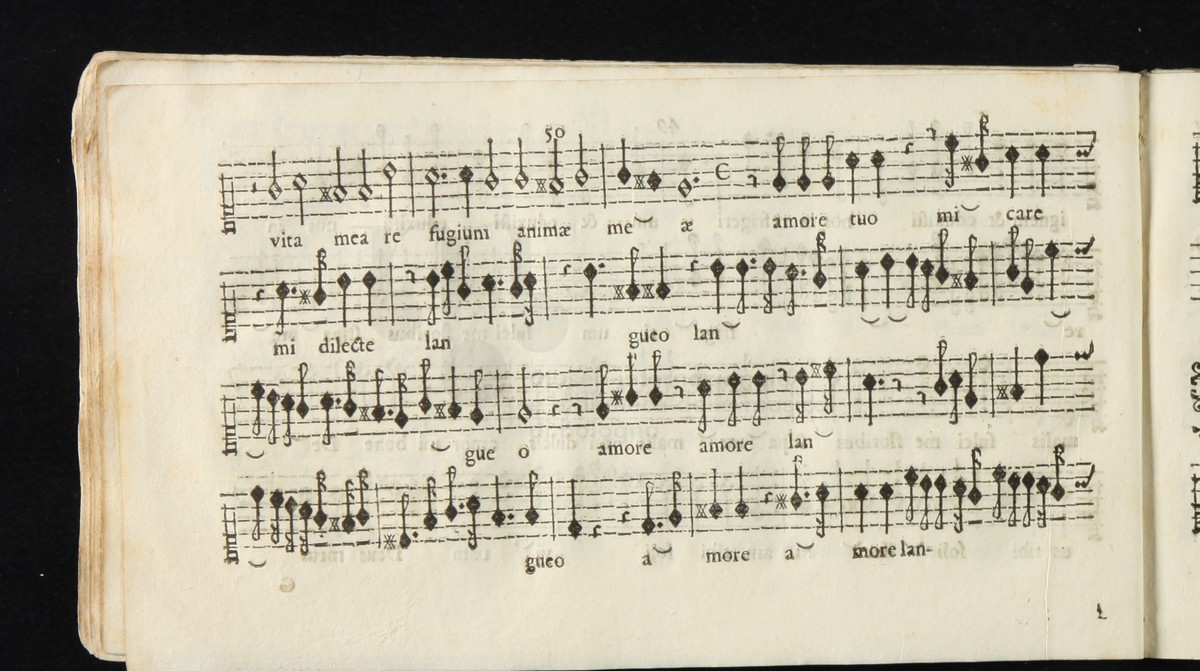 50
vita mea re fugium animæ me æ amore tuo mi care
mi dilecte lan gueo lan
gue o amore amore lan
gueo a more a more lan-